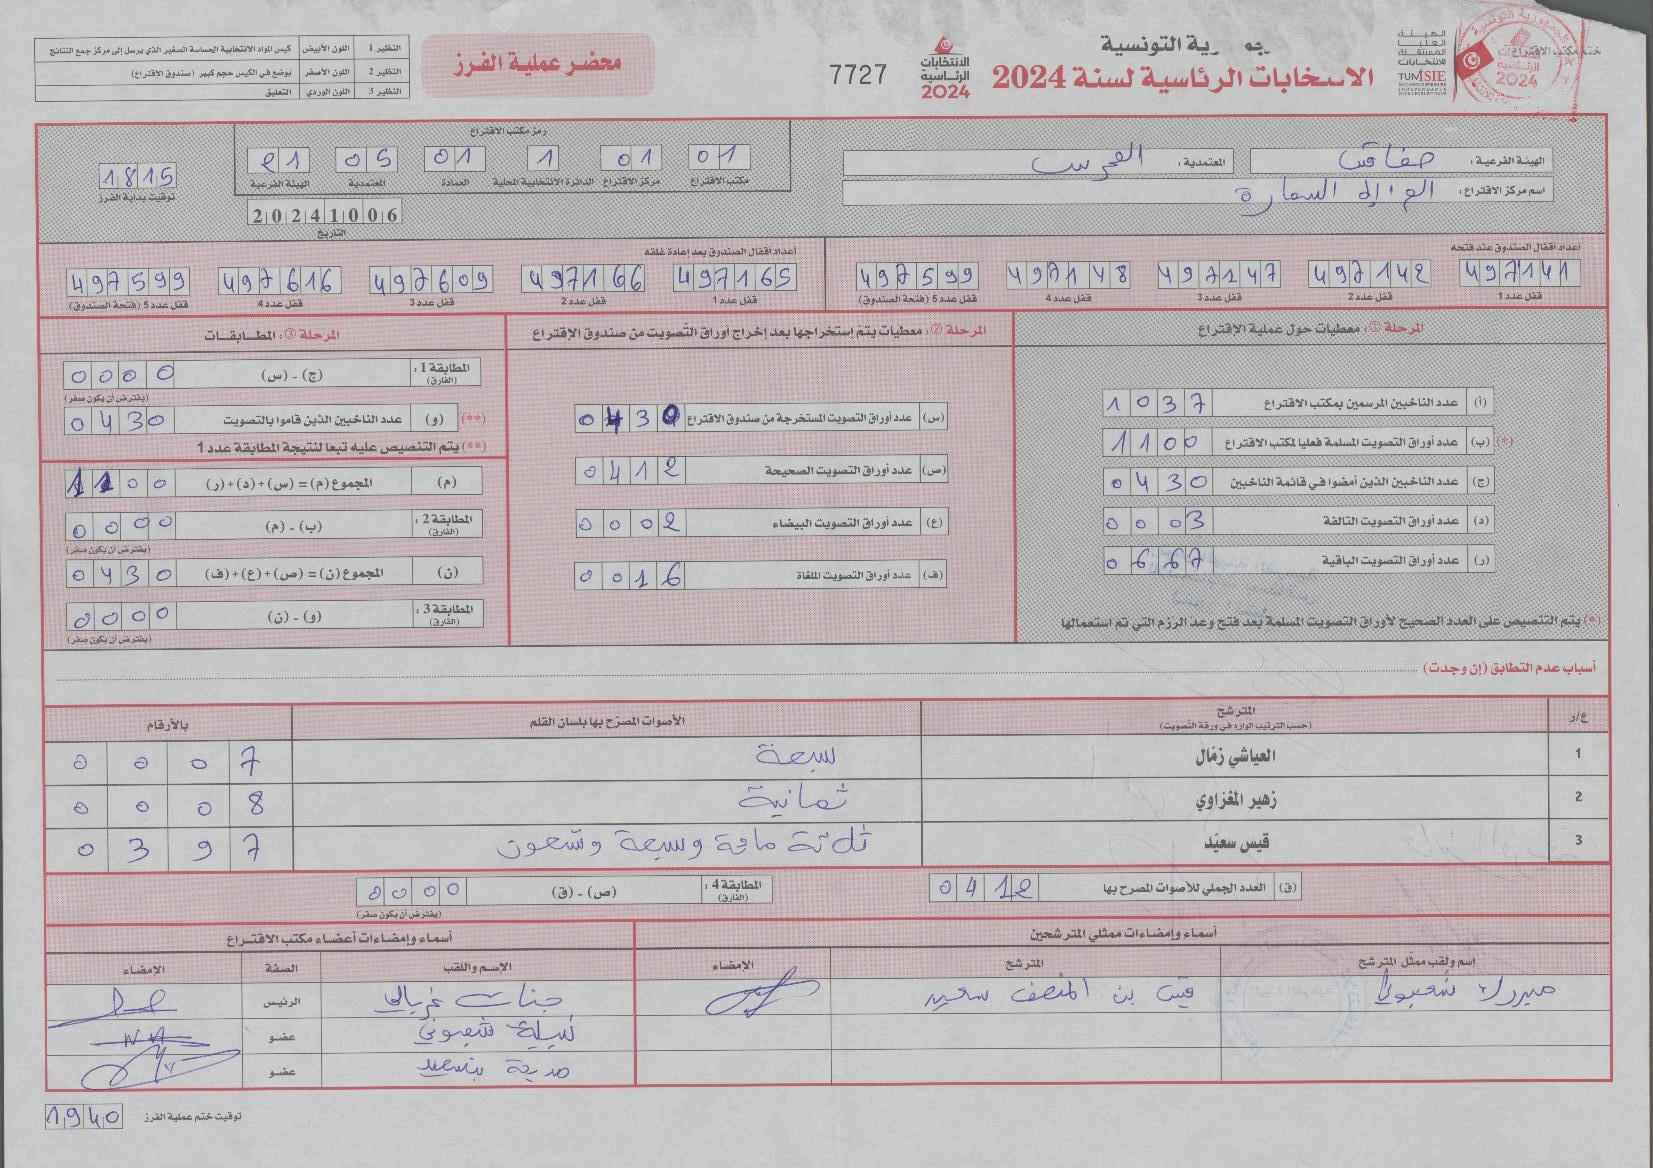 الجمهورية التونسية
الانتخابات الرئاسية لسنة 2024
الهيئة العليا المستقلة للانتخابات
TUNISIE
ختم مكتب الاقتراع
الانتخابات الرئاسية 2024
7727
محضر عملية الفرز
النظير 1 اللون الأبيض كيس المواد الانتخابية الحساسة الصغير الذي يرسل إلى مركز جمع النتائج
النظير 2 اللون الأصفر يوضع في الكيس حجم كبير (صندوق الاقتراع)
النظير 3 اللون الوردي التعليق
الهيئة الفرعية: صفاقس
المعتمدية:
اسم مركز الاقتراع: السمارة
رمز مكتب الاقتراع
01 01 1 01 05 21
مكتب الاقتراع مركز الاقتراع الدائرة الانتخابية المحلية العمادة المعتمدية الهيئة الفرعية
1815
توقيت بداية الفرز
20241006
التاريخ
أعداد أقفال الصندوق عند فتحه
497141 497142 497147 497148 497599
قفل عدد 1 قفل عدد 2 قفل عدد 3 قفل عدد 4 قفل عدد 5 (فتحة الصندوق)
أعداد أقفال الصندوق بعد إعادة غلقه
497165 497166 497609 497616 497599
قفل عدد 1 قفل عدد 2 قفل عدد 3 قفل عدد 4 قفل عدد 5 (فتحة الصندوق)
المرحلة ①: معطيات حول عملية الإقتراع
(أ) عدد الناخبين المرسمين بمكتب الاقتراع 1037
(*) (ب) عدد أوراق التصويت المسلمة فعليا لمكتب الاقتراع 1100
(ج) عدد الناخبين الذين أمضوا في قائمة الناخبين 0430
(د) عدد أوراق التصويت التالفة 0003
(ر) عدد أوراق التصويت الباقية 0667
(*) يتم التنصيص على العدد الصحيح لأوراق التصويت المسلمة بعد فتح وعد الرزم التي تم استعمالها
المرحلة ②: معطيات يتم إستخراجها بعد إخراج أوراق التصويت من صندوق الإقتراع
(س) عدد أوراق التصويت المستخرجة من صندوق الاقتراع 0430
(ص) عدد أوراق التصويت الصحيحة 0412
(ع) عدد أوراق التصويت البيضاء 0002
(ف) عدد أوراق التصويت الملغاة 0016
المرحلة ③: المطابقات
المطابقة 1: (الفارق) (ج) - (س) 0000
(يفترض أن يكون صفر)
(**) (و) عدد الناخبين الذين قاموا بالتصويت 0430
(**) يتم التنصيص عليه تبعا لنتيجة المطابقة عدد 1
(م) المجموع (م) = (س)+(د)+(ر) 1100
المطابقة 2: (الفارق) (ب) - (م) 0000
(يفترض أن يكون صفر)
(ن) المجموع (ن) = (ص)+(ع)+(ف) 0430
المطابقة 3: (الفارق) (و) - (ن) 0000
(يفترض أن يكون صفر)
أسباب عدم التطابق (إن وجدت)
ع/ر المترشح (حسب الترتيب الوارد في ورقة التصويت) الأصوات المصرح بها بلسان القلم بالأرقام
1 العياشي زمّال سبعة 0007
2 زهير المغزاوي ثمانية 0008
3 قيس سعيّد ثلاثة مائة وسبعة وتسعون 0397
(ق) العدد الجملي للأصوات المصرح بها 0412
المطابقة 4: (الفارق) (ص) - (ق) 0000
(يفترض أن يكون صفر)
أسماء وإمضاءات ممثلي المترشحين
اسم ولقب ممثل المترشح المترشح الإمضاء
شعبوني قيس بن المنصف سعيد
أسماء وإمضاءات أعضاء مكتب الاقتراع
الإسم واللقب الصفة الإمضاء
جنات غربالي الرئيس
نبيلة شعبوني عضو
مديحة بنسعيد عضو
توقيت ختم عملية الفرز 1940